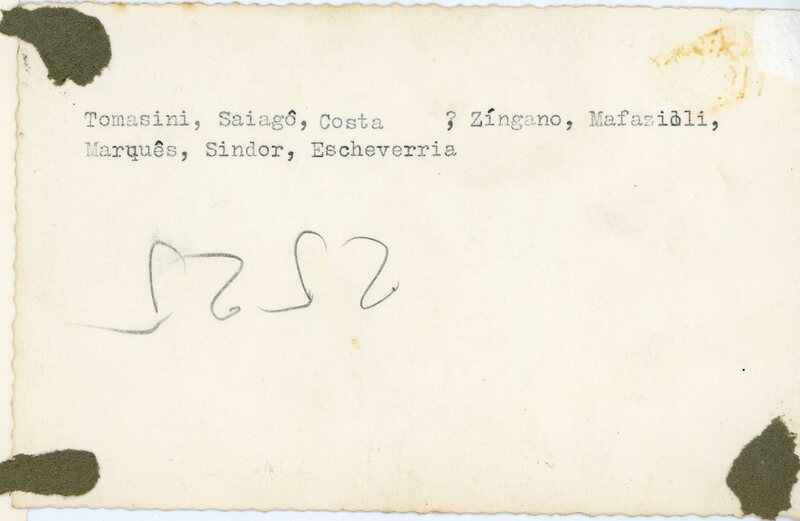 Tomasini, Saiagô, Costa ? Zíngano, Mafazioli,
Marquês, Sindor, Escheverria